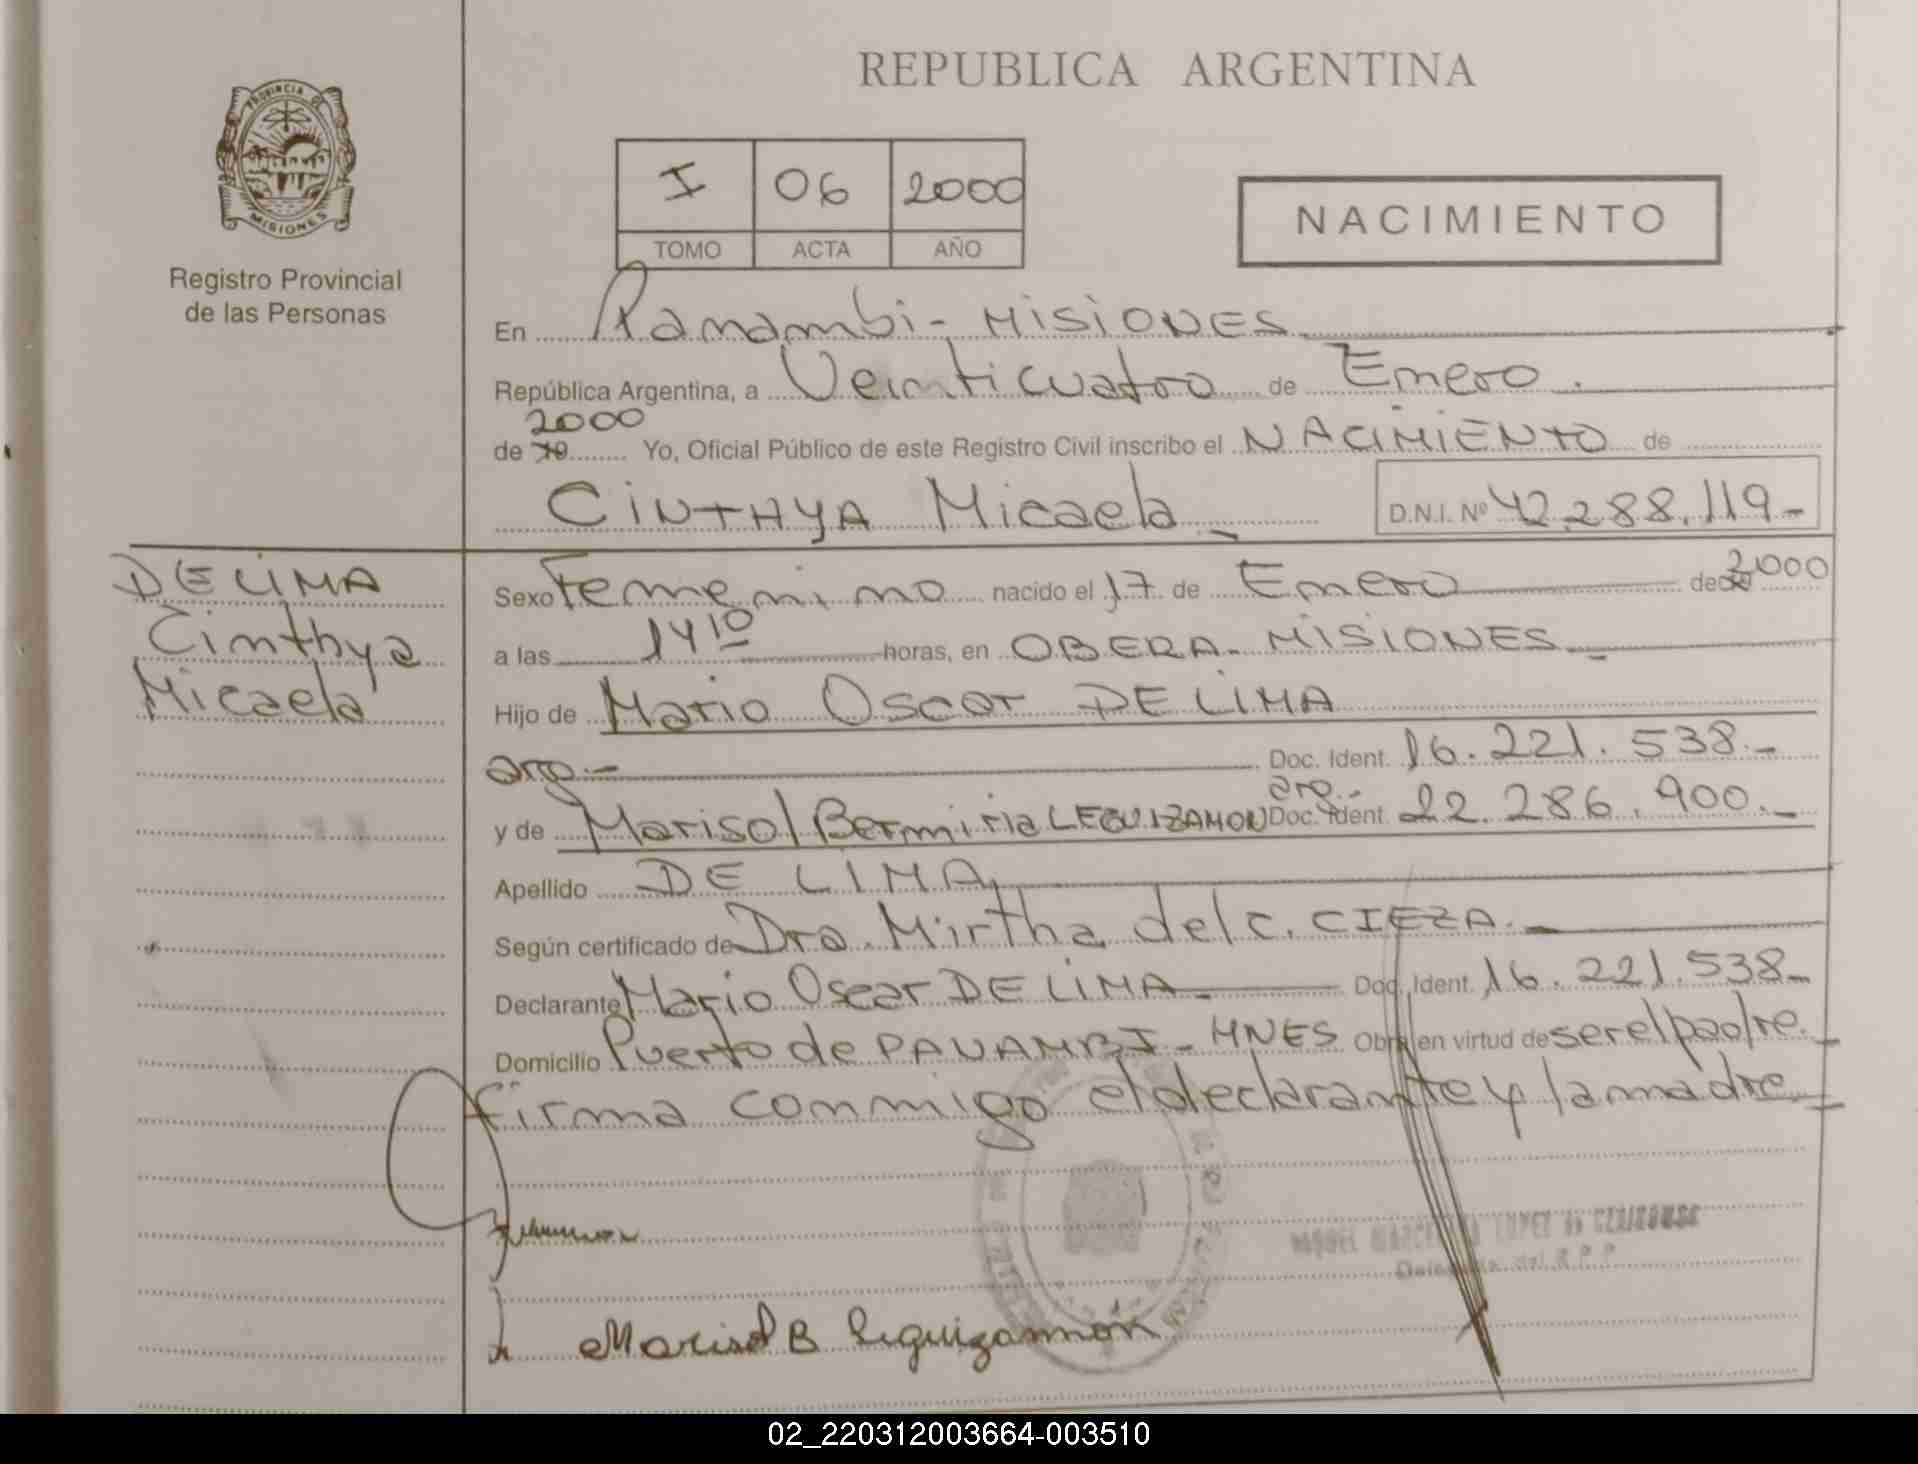 REPUBLICA ARGENTINA
PROVINCIA DE
MISIONES
Registro Provincial
de las Personas
I 06 2000
TOMO ACTA AÑO
NACIMIENTO
En Panambi - MISIONES
República Argentina, a Veinticuatro de Enero.
2000
de 19 Yo, Oficial Público de este Registro Civil inscribo el NACIMIENTO de
CINTHYA Micaela D.N.I. Nº 42.288.119.-
DE LIMA
Cinthya
Micaela
Sexo Femenino nacido el 17 de Enero de 2000
a las 14 10 horas, en OBERA - MISIONES
Hijo de Mario Oscar DE LIMA
arg.- Doc. Ident. 16.221.538.-
arg.-
y de Marisol Bermiria LEGUIZAMON Doc. Ident. 22.286.900.-
Apellido DE LIMA
Según certificado de Dra. Mirtha del C. CIEZA.-
Declarante Mario Oscar DE LIMA Doc. Ident. 16.221.538-
Domicilio Puerto de PANAMBI - MNES Obra en virtud de ser el padre.
firma conmigo el declarante y la madre
Marisol B Leguizamón
02_220312003664-003510